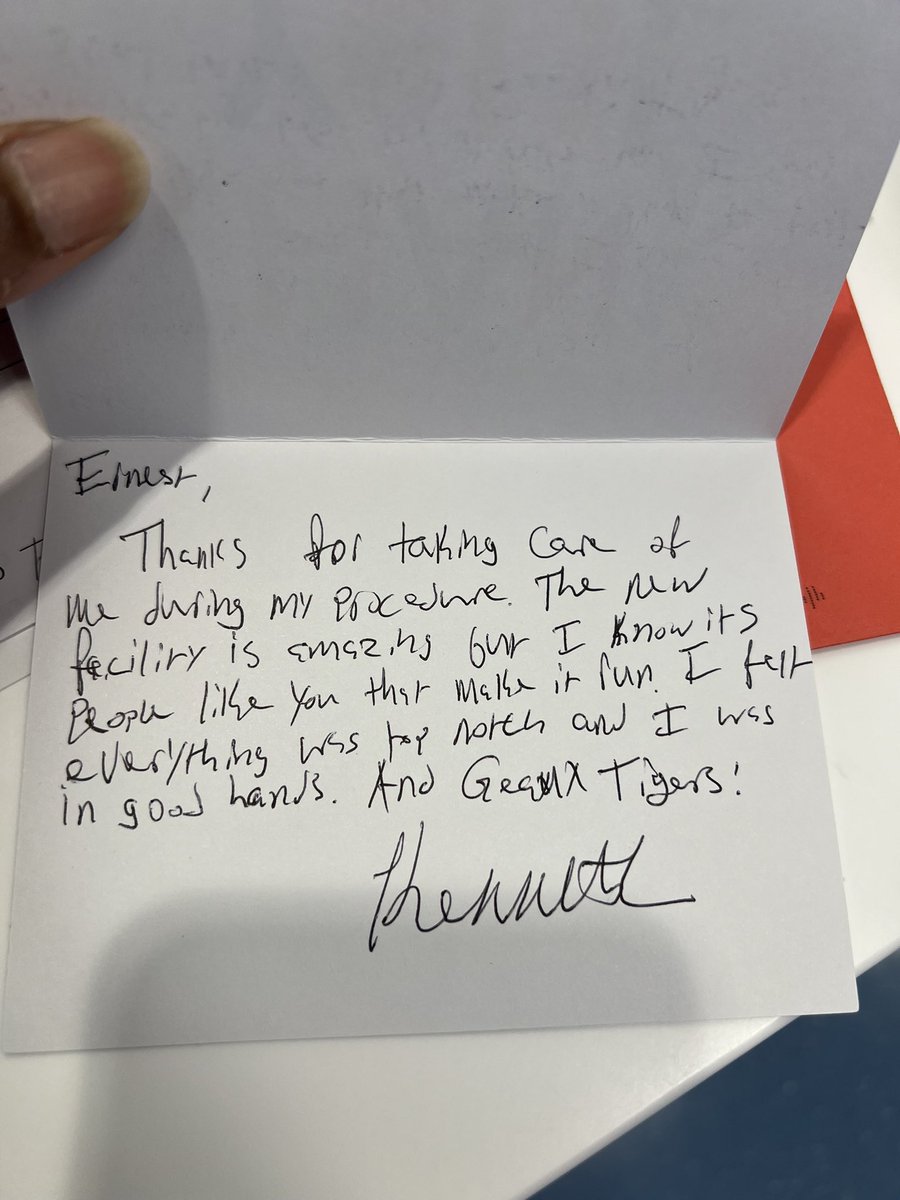 Ernest,
Thanks for taking care of
me during my procedure. The new
facility is amazing but I know its
people like you that make it fun. I felt
everything was top notch and I was
in good hands. And Geaux Tigers!
Kenneth